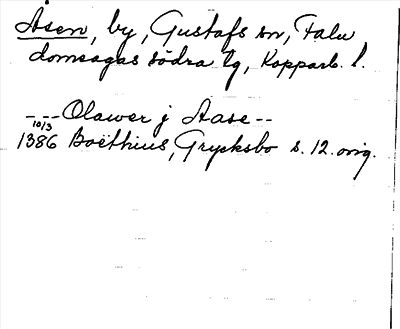 Åsen, by, Gustafs sn, Falu
domsagas södra tg, Kopparb. l.
---Olawer j Aase--
10/3
1386 Boëthius, Grycksbo s. 12. orig.